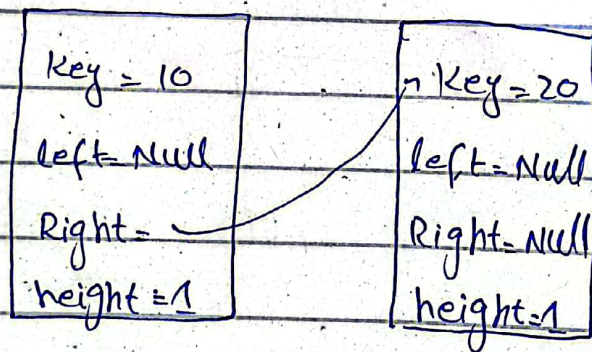 Key = 10
left = Null
Right =
height = 1
Key = 20
left = Null
Right = Null
height = 1